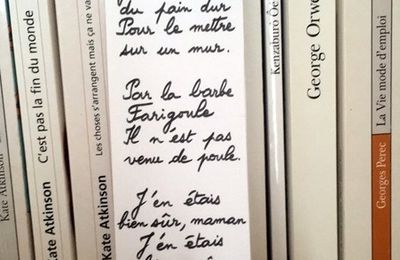 Kate Atkinson
Kate Atkinson
C'est pas la fin du monde
Kate Atkinson
Les choses s'arrangent mais ça ne va
du pain dur
Pour le mettre
sur un mur.
Par la barbe
Farigoule
Il n'est pas
venu de poule.
J'en étais
bien sûr, maman
J'en étais
Kenzaburô Ôe
George Orwe
Georges Perec
La Vie mode d'emploi